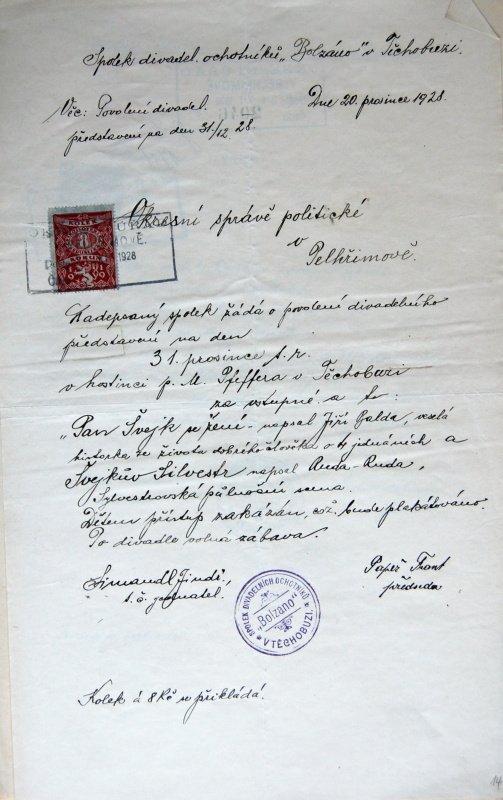 Spolek divadel. ochotníků „Bolzáno" v Těchobuzi.
Věc: Povolení divadel.
představení na den 31./12. 28.
Dne 20. prosince 1928.
KOLEK
8
KORUN
1928
Okresní správě politické
v
Pelhřimově.
Nadepsaný spolek žádá o povolení divadelního
představení na den
31. prosince t. r.
v hostinci p. M. Pfeffera v Těchobuzi
za vstupné a to:
„Pan Švejk se žení - napsal Jiří Balda, veselá
historka ze života dobrého člověka o 4 jednáních a
Švejkův Silvestr napsal Ruda-Ruda,
Sylvestrovská půlnoční scena.
Dětem přístup zakázán, což bude plakátováno.
Po divadle volná zábava.
t. č. jednatel.
předseda
SPOLEK DIVADELNÍCH OCHOTNÍKŮ
„Bolzano"
V TĚCHOBUZI.
Kolek á 8 Kč se přikládá.
14